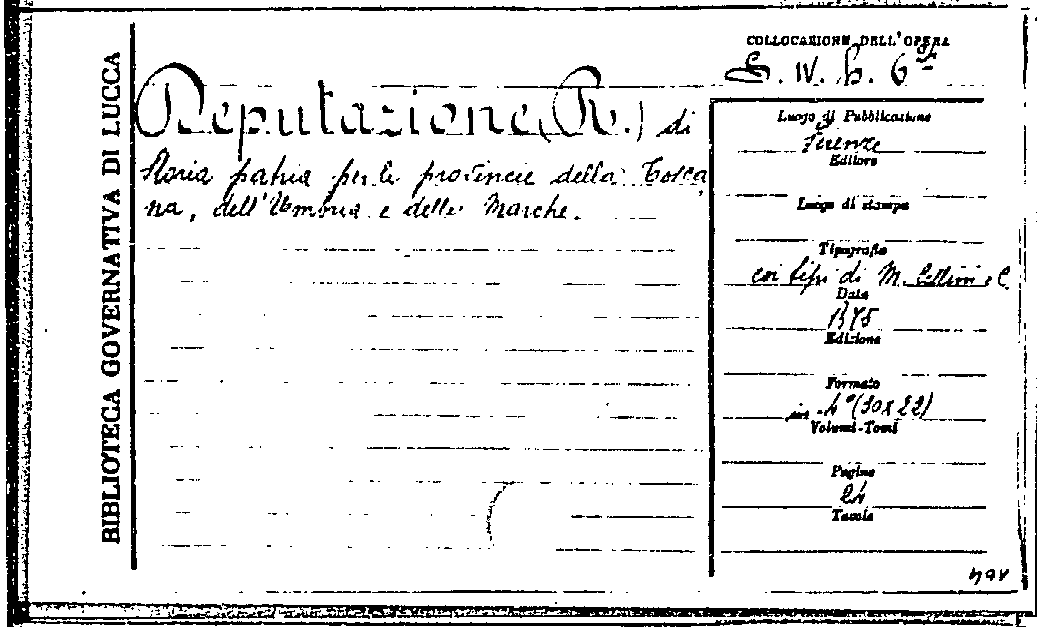 BIBLIOTECA GOVERNATIVA DI LUCCA
Deputazione (R.) di
Storia patria per le provincie della Tosca
na, dell'Umbria e delle Marche.
COLLOCAZIONE DELL'OPERA
IV. h. 6
Luogo di Pubblicazione
Firenze
Editore
Luogo di stampa
Tipografia
coi tipi di M. Cellini e C.
Data
1875
Edizione
Formato
in -4° (30x22)
Volumi-Tomi
Pagine
24
Tavole